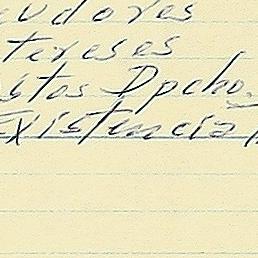 udores
tereses
stos Dpcho.
Existencia